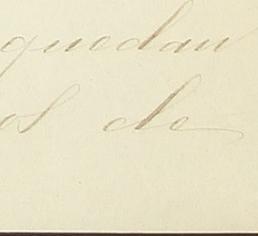 quedan
os de